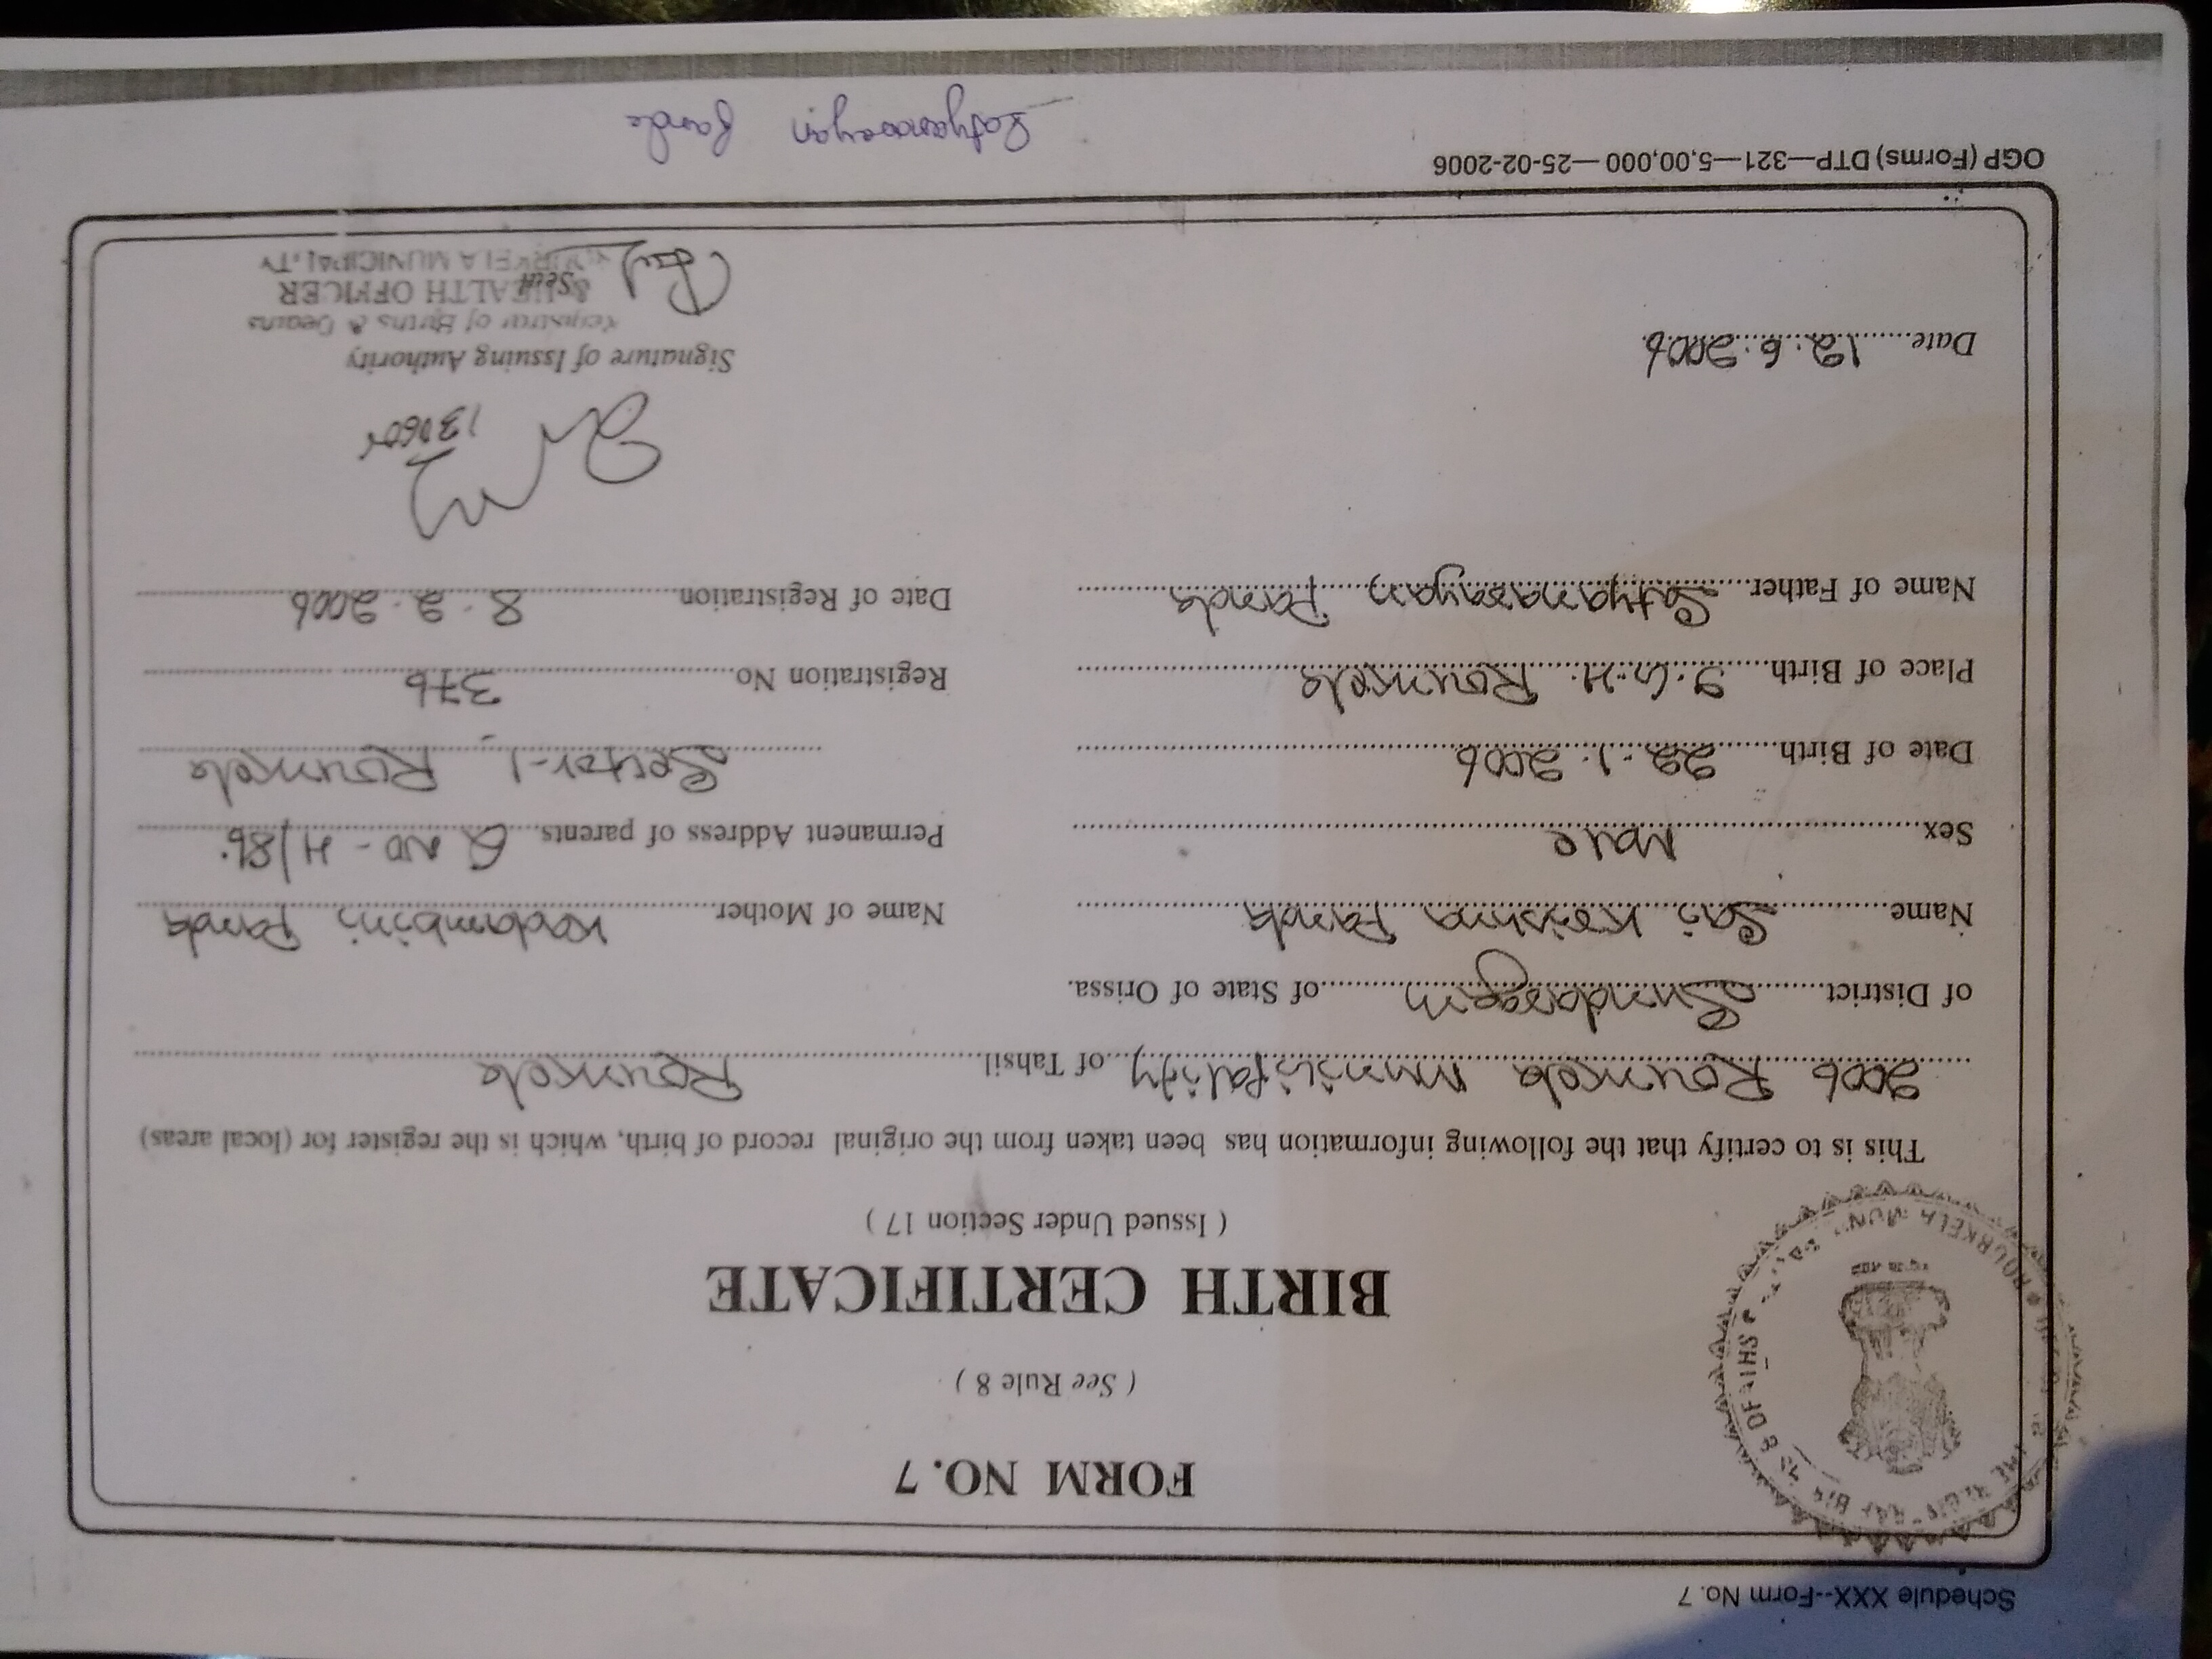 Schedule XXX--Form No. 7
FORM NO. 7
( See Rule 8 )
BIRTH CERTIFICATE
( Issued Under Section 17 )
This is to certify that the following information has been taken from the original record of birth, which is the register for (local areas)
2006 Rourkela Municipality of Tahsil Rourkela
of District Sundargarh of State of Orissa.
Name Sai Krishna Panda
Name of Mother Kadambini Panda
Sex Male
Permanent Address of parents Q NO - H/86.
Date of Birth 22.1.2006
Sector-1, Rourkela
Place of Birth I.G.H. Rourkela
Registration No 376
Name of Father Satyanarayan Panda
Date of Registration 8.2.2006
Date 12.6.2006
Signature of Issuing Authority
Registrar of Births & Deaths
& HEALTH OFFICER
Seal
ROURKELA MUNICIPALITY
OGP (Forms) DTP—321—5,00,000—25-02-2006
Satyanarayan Panda